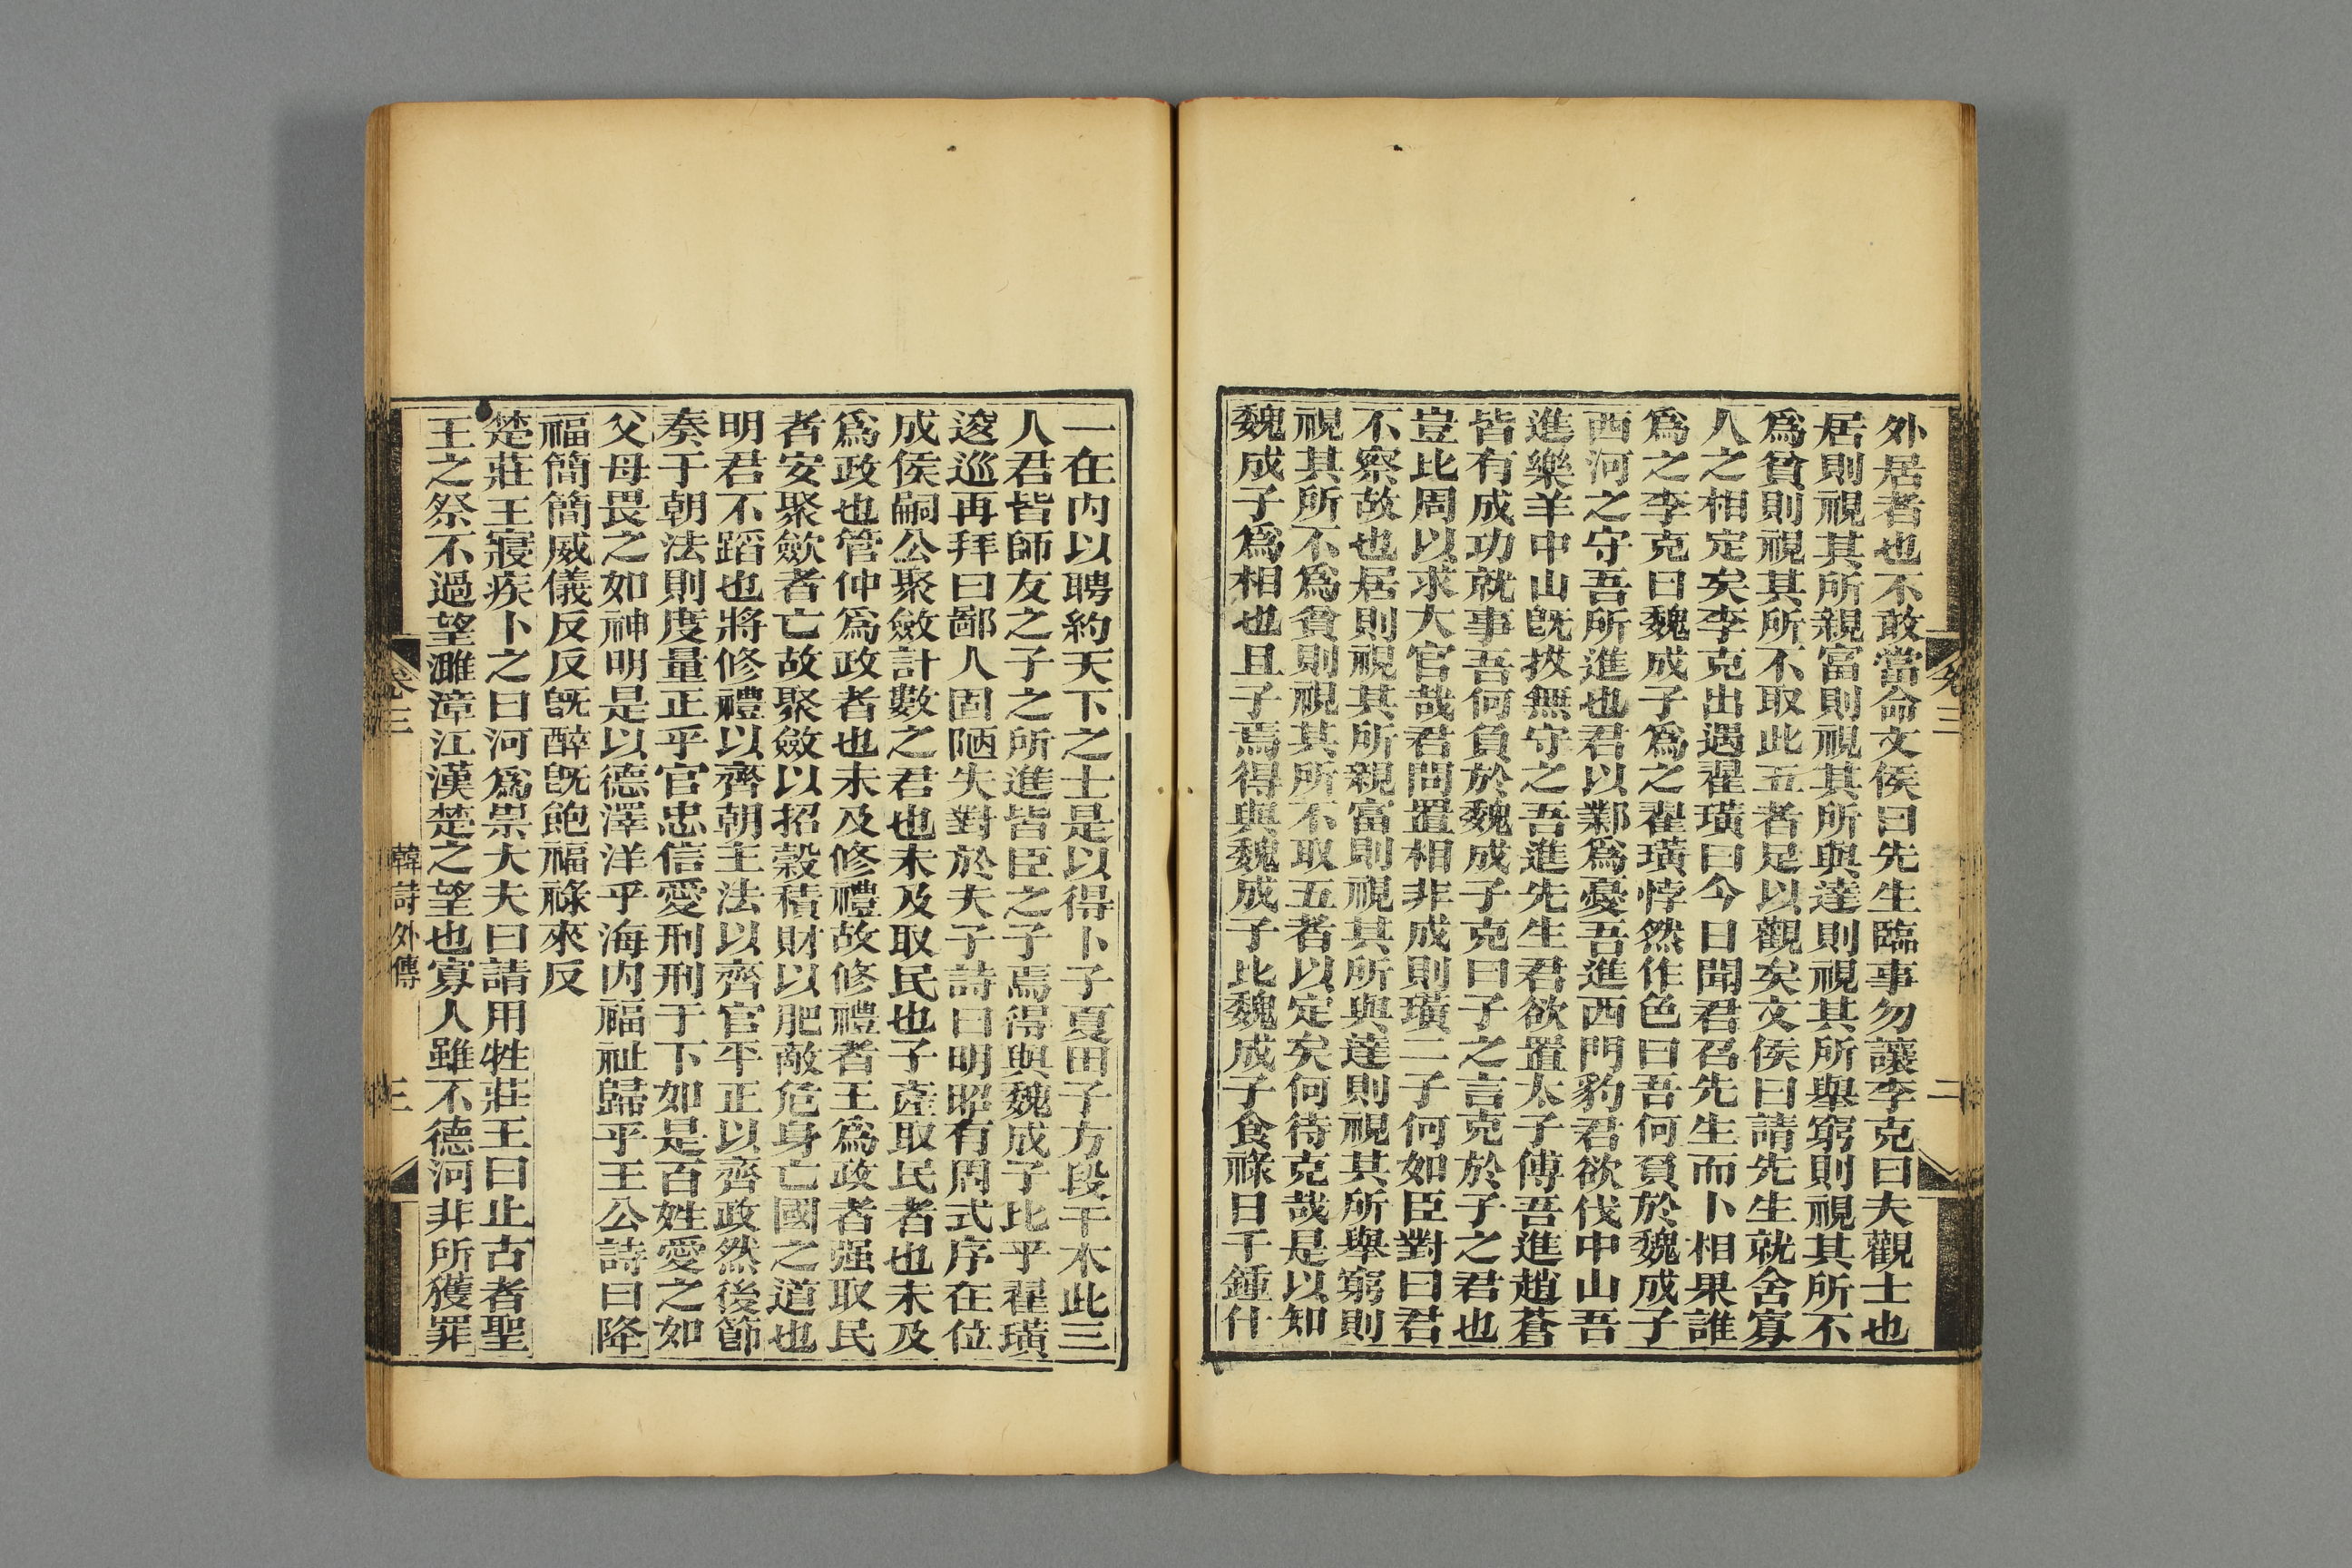 外居者也不敢當命文侯曰先生臨事勿讓李克曰夫觀士也
居則視其所親富則視其所與達則視其所舉窮則視其所不
爲貧則視其所不取此五者足以觀矣文侯曰請先生就舍寡
人之相定矣李克出遇翟璜曰今日聞君召先生而卜相果誰
爲之李克曰魏成子爲之翟璜悖然作色曰吾何負於魏成子
西河之守吾所進也君以鄴爲憂吾進西門豹君欲伐中山吾
進樂羊中山旣拔無守之吾進先生君欲置太子傅吾進趙蒼
皆有成功就事吾何負於魏成子克曰子之言克於子之君也
豈比周以求大官哉君問置相非成則璜二子何如臣對曰君
不察故也居則視其所親富則視其所與達則視其所舉窮則
視其所不爲貧則視其所不取五者以定矣何待克哉是以知
魏成子爲相也且子焉得與魏成子比魏成子食祿日千鍾什
卷三
二
一在内以聘約天下之士是以得卜子夏田子方段干木此三
人君皆師友之子之所進皆臣之子焉得與魏成子比乎翟璜
逡巡再拜曰鄙人固陋失對於夫子詩曰明昭有周式序在位
成侯嗣公聚斂計數之君也未及取民也子產取民者也未及
爲政也管仲爲政者也未及修禮故修禮者王爲政者强取民
者安聚歛者亡故聚斂以招榖積財以肥敵危身亡國之道也
明君不蹈也將修禮以齊朝主法以齊官平正以齊政然後節
奏于朝法則度量正乎官忠信愛刑刑于下如是百姓愛之如
父母畏之如神明是以德澤洋乎海内福祉歸乎王公詩曰降
福簡簡威儀反反旣醉旣飽福祿來反
楚莊王寢疾卜之曰河爲祟大夫曰請用牲莊王曰止古者聖
王之祭不過望濉漳江漢楚之望也寡人雖不德河非所獲罪
卷三
韓詩外傳
三